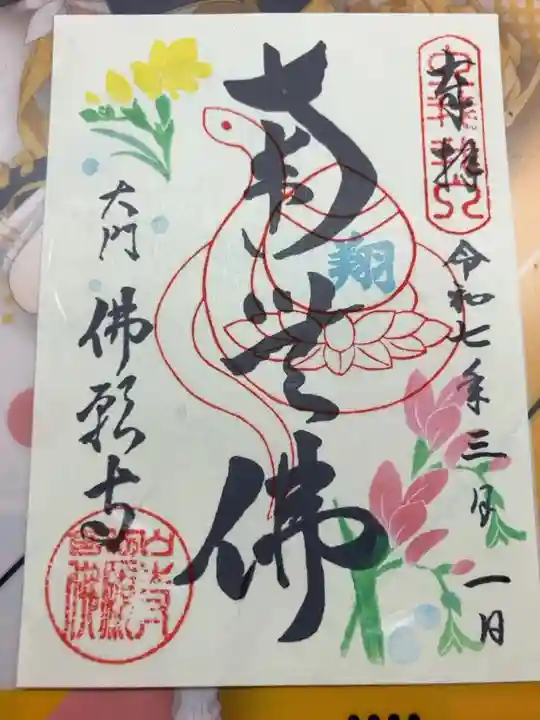 奉拝
令和七年三月一日
南無佛
翔
大門
佛願寺